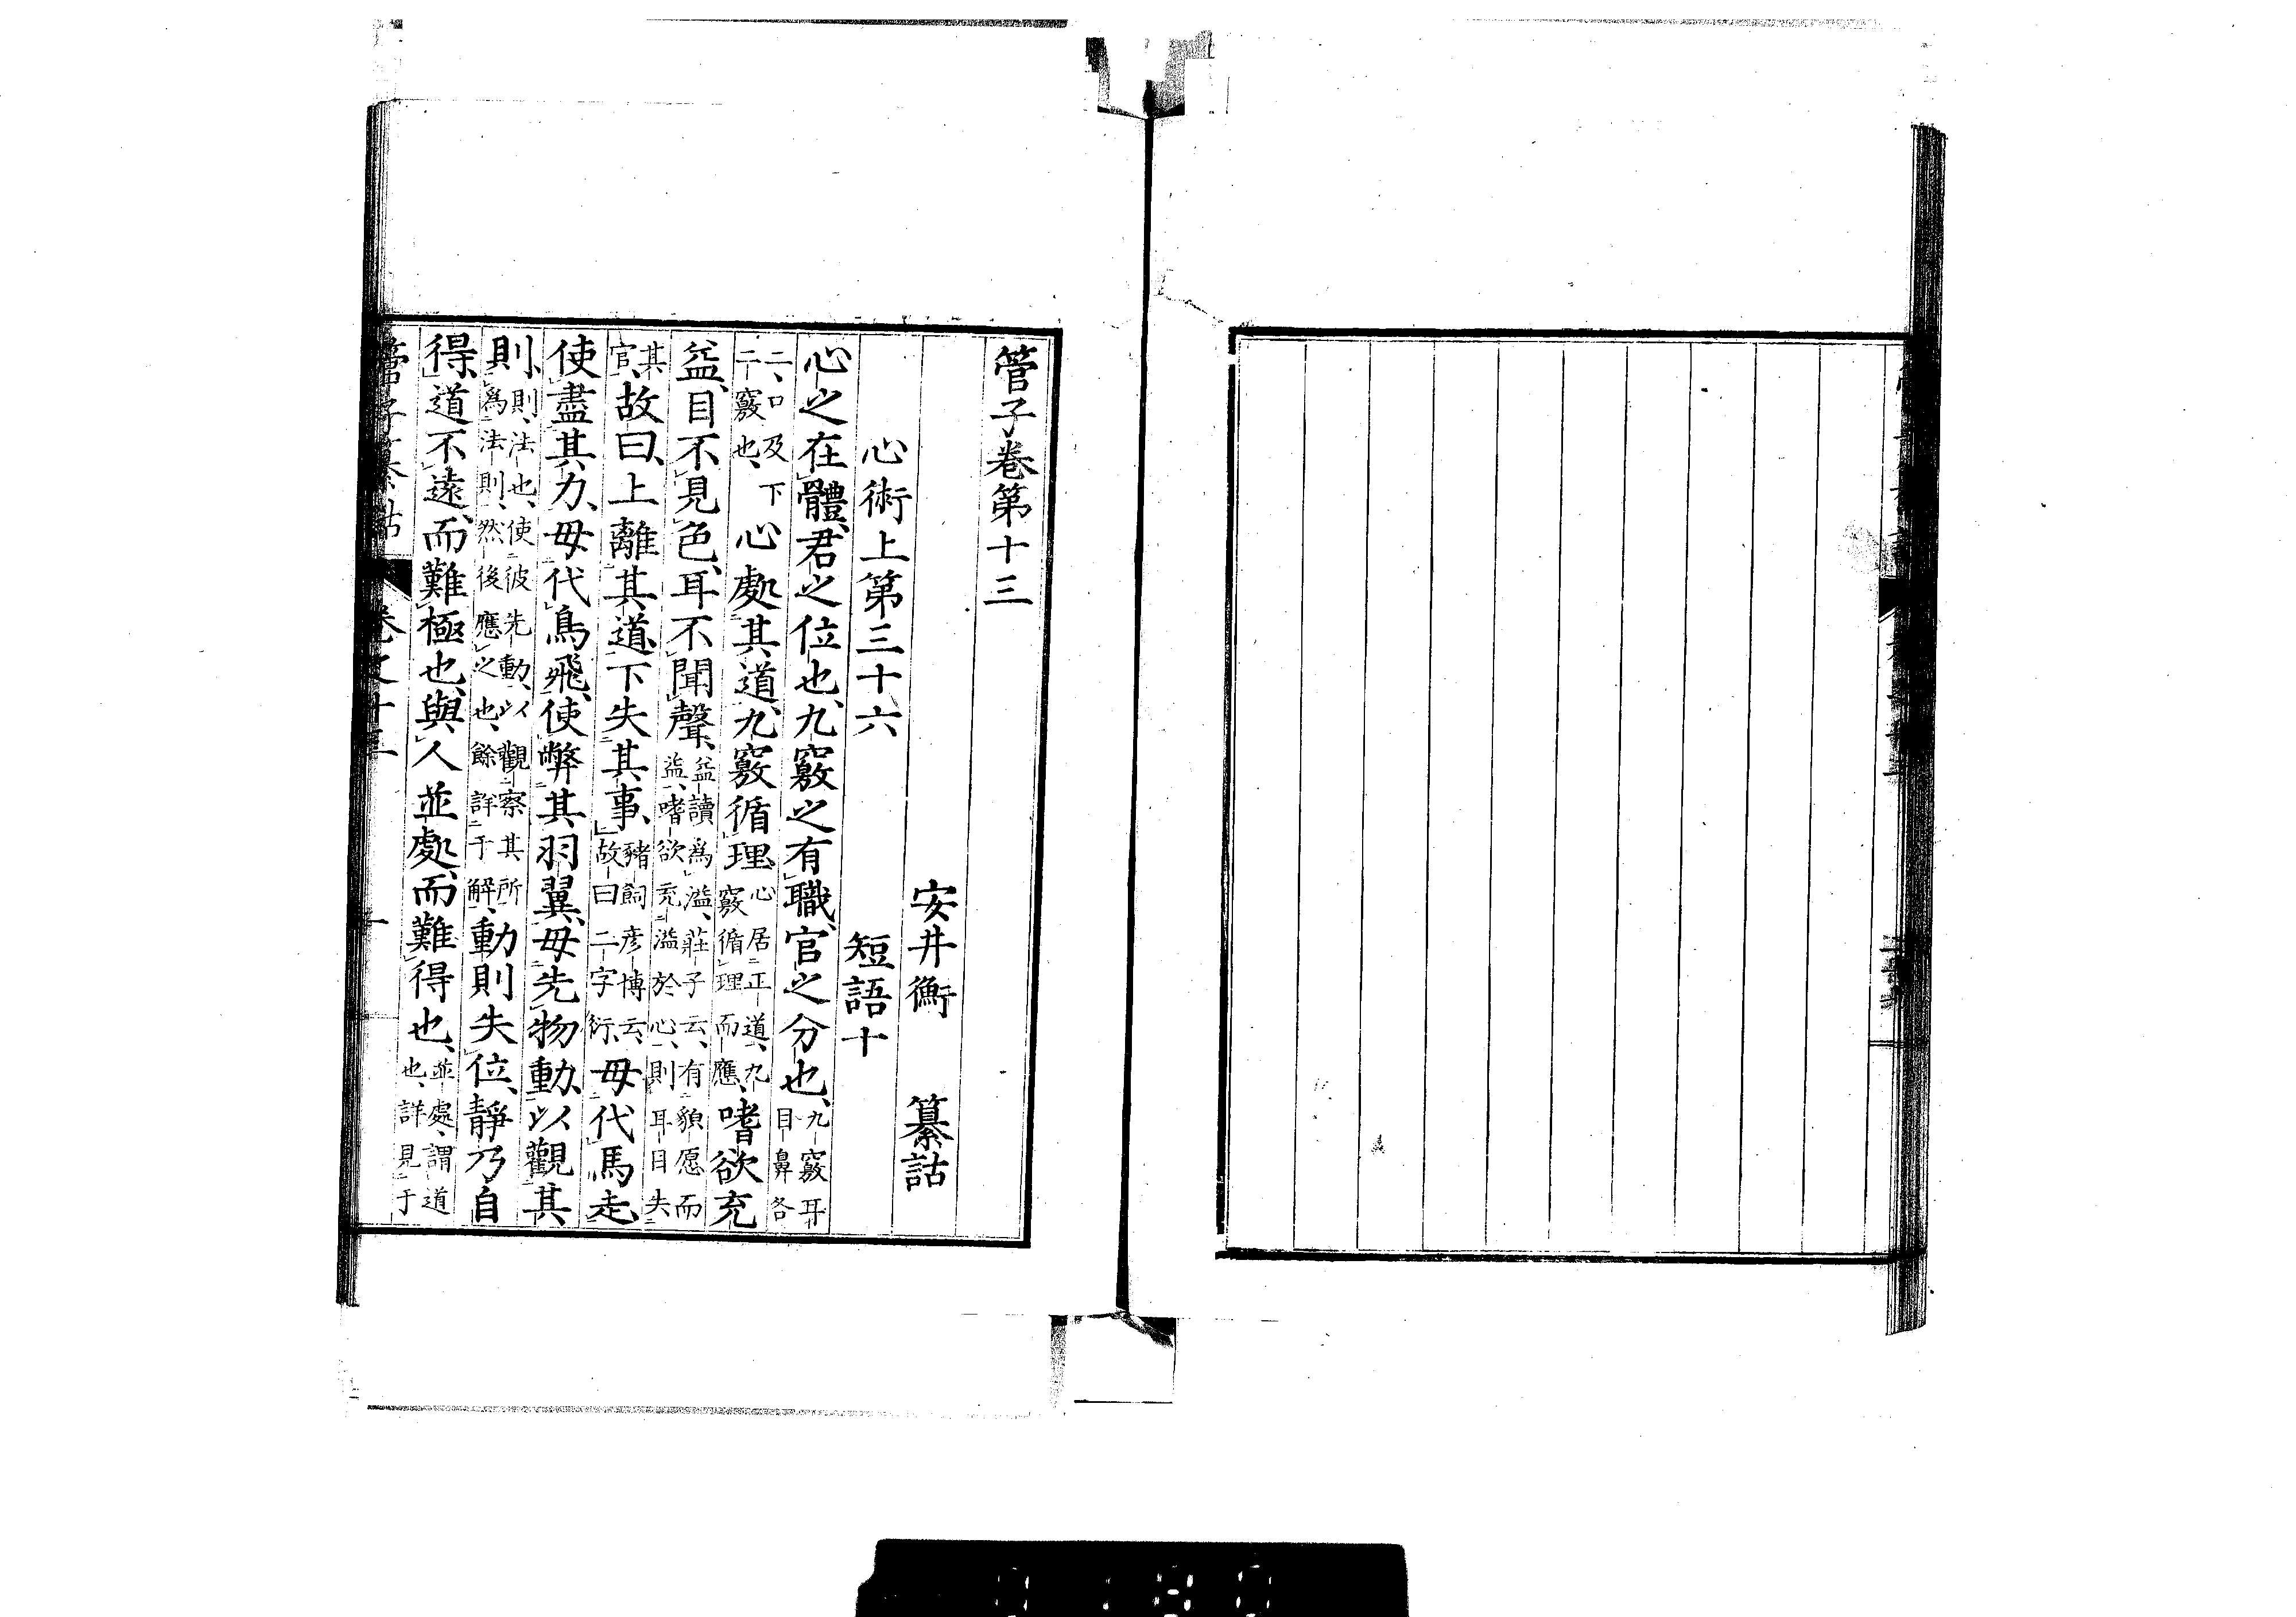 管子卷第十三
安井衡　纂詁
心術上第三十六　短語十
心之在體、君之位也、九竅之有職、官之分也、九竅耳目鼻各
二、口及下二竅也、心處其道、九竅循理、心居正道、九竅循理而應、嗜欲充
益、目不見色、耳不聞聲、益讀爲溢、莊子云、有貌愿而益、嗜欲充溢於心、則耳目失
其官、故曰、上離其道、下失其事、豬飼彦博云、故曰二字衍、毋代馬走、
使盡其力、毋代鳥飛、使弊其羽翼、毋先物動、以觀其
則、則、法也、使彼先動、以觀察其所爲法則、然後應之也、餘詳于解、動則失位、靜乃自
得、道不遠、而難極也、與人並處、而難得也、並處、謂道也、詳見于